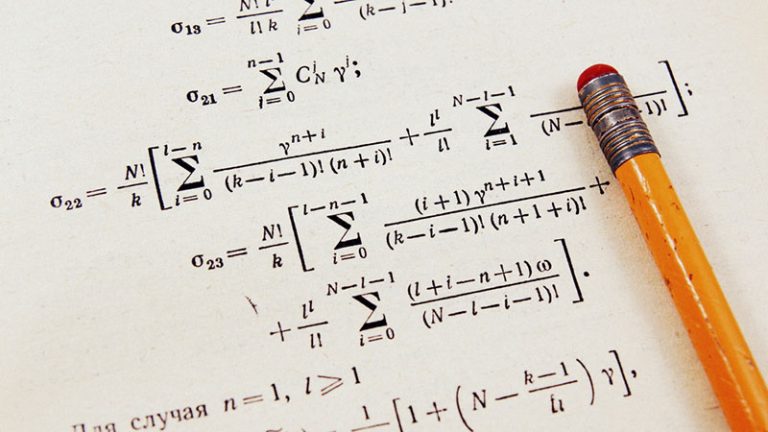 σ₁₃ = N! / l! k ∑ i=0 (k−i−1)!
σ₂₁ = ∑_{i=0}^{n−1} C_N^i γ^i;
σ₂₂ = N!/k [ ∑_{i=0}^{l−n} γ^{n+i} / (k−i−1)! (n+i)! + l^l/l! ∑_{i=1}^{N−l−1} / (N− 1)! ];
σ₂₃ = N!/k [ ∑_{i=0}^{l−n−1} (i+1) γ^{n+i+1} / (k−i−1)! (n+1+i)! +
+ l^l/l! ∑_{i=0}^{N−l−1} (l+i−n+1) ω / (N−l−i−1)! ].
Для случая n=1, l⩾1
1 [ 1 + ( N − k−1 / ) γ ],